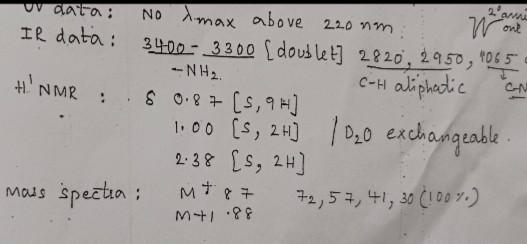 UV data: NO λmax above 220 nm. 2° ami
IR data: 3400 - 3300 [doublet] 2820, 2950, 1065
-NH2. C-H aliphatic C-N
H' NMR : δ 0.87 [S, 9H]
1.00 [S, 2H] / D2O exchangeable.
2.38 [S, 2H]
Mass spectra : M+ 87 72, 57, 41, 30 (100%)
M+1 .88